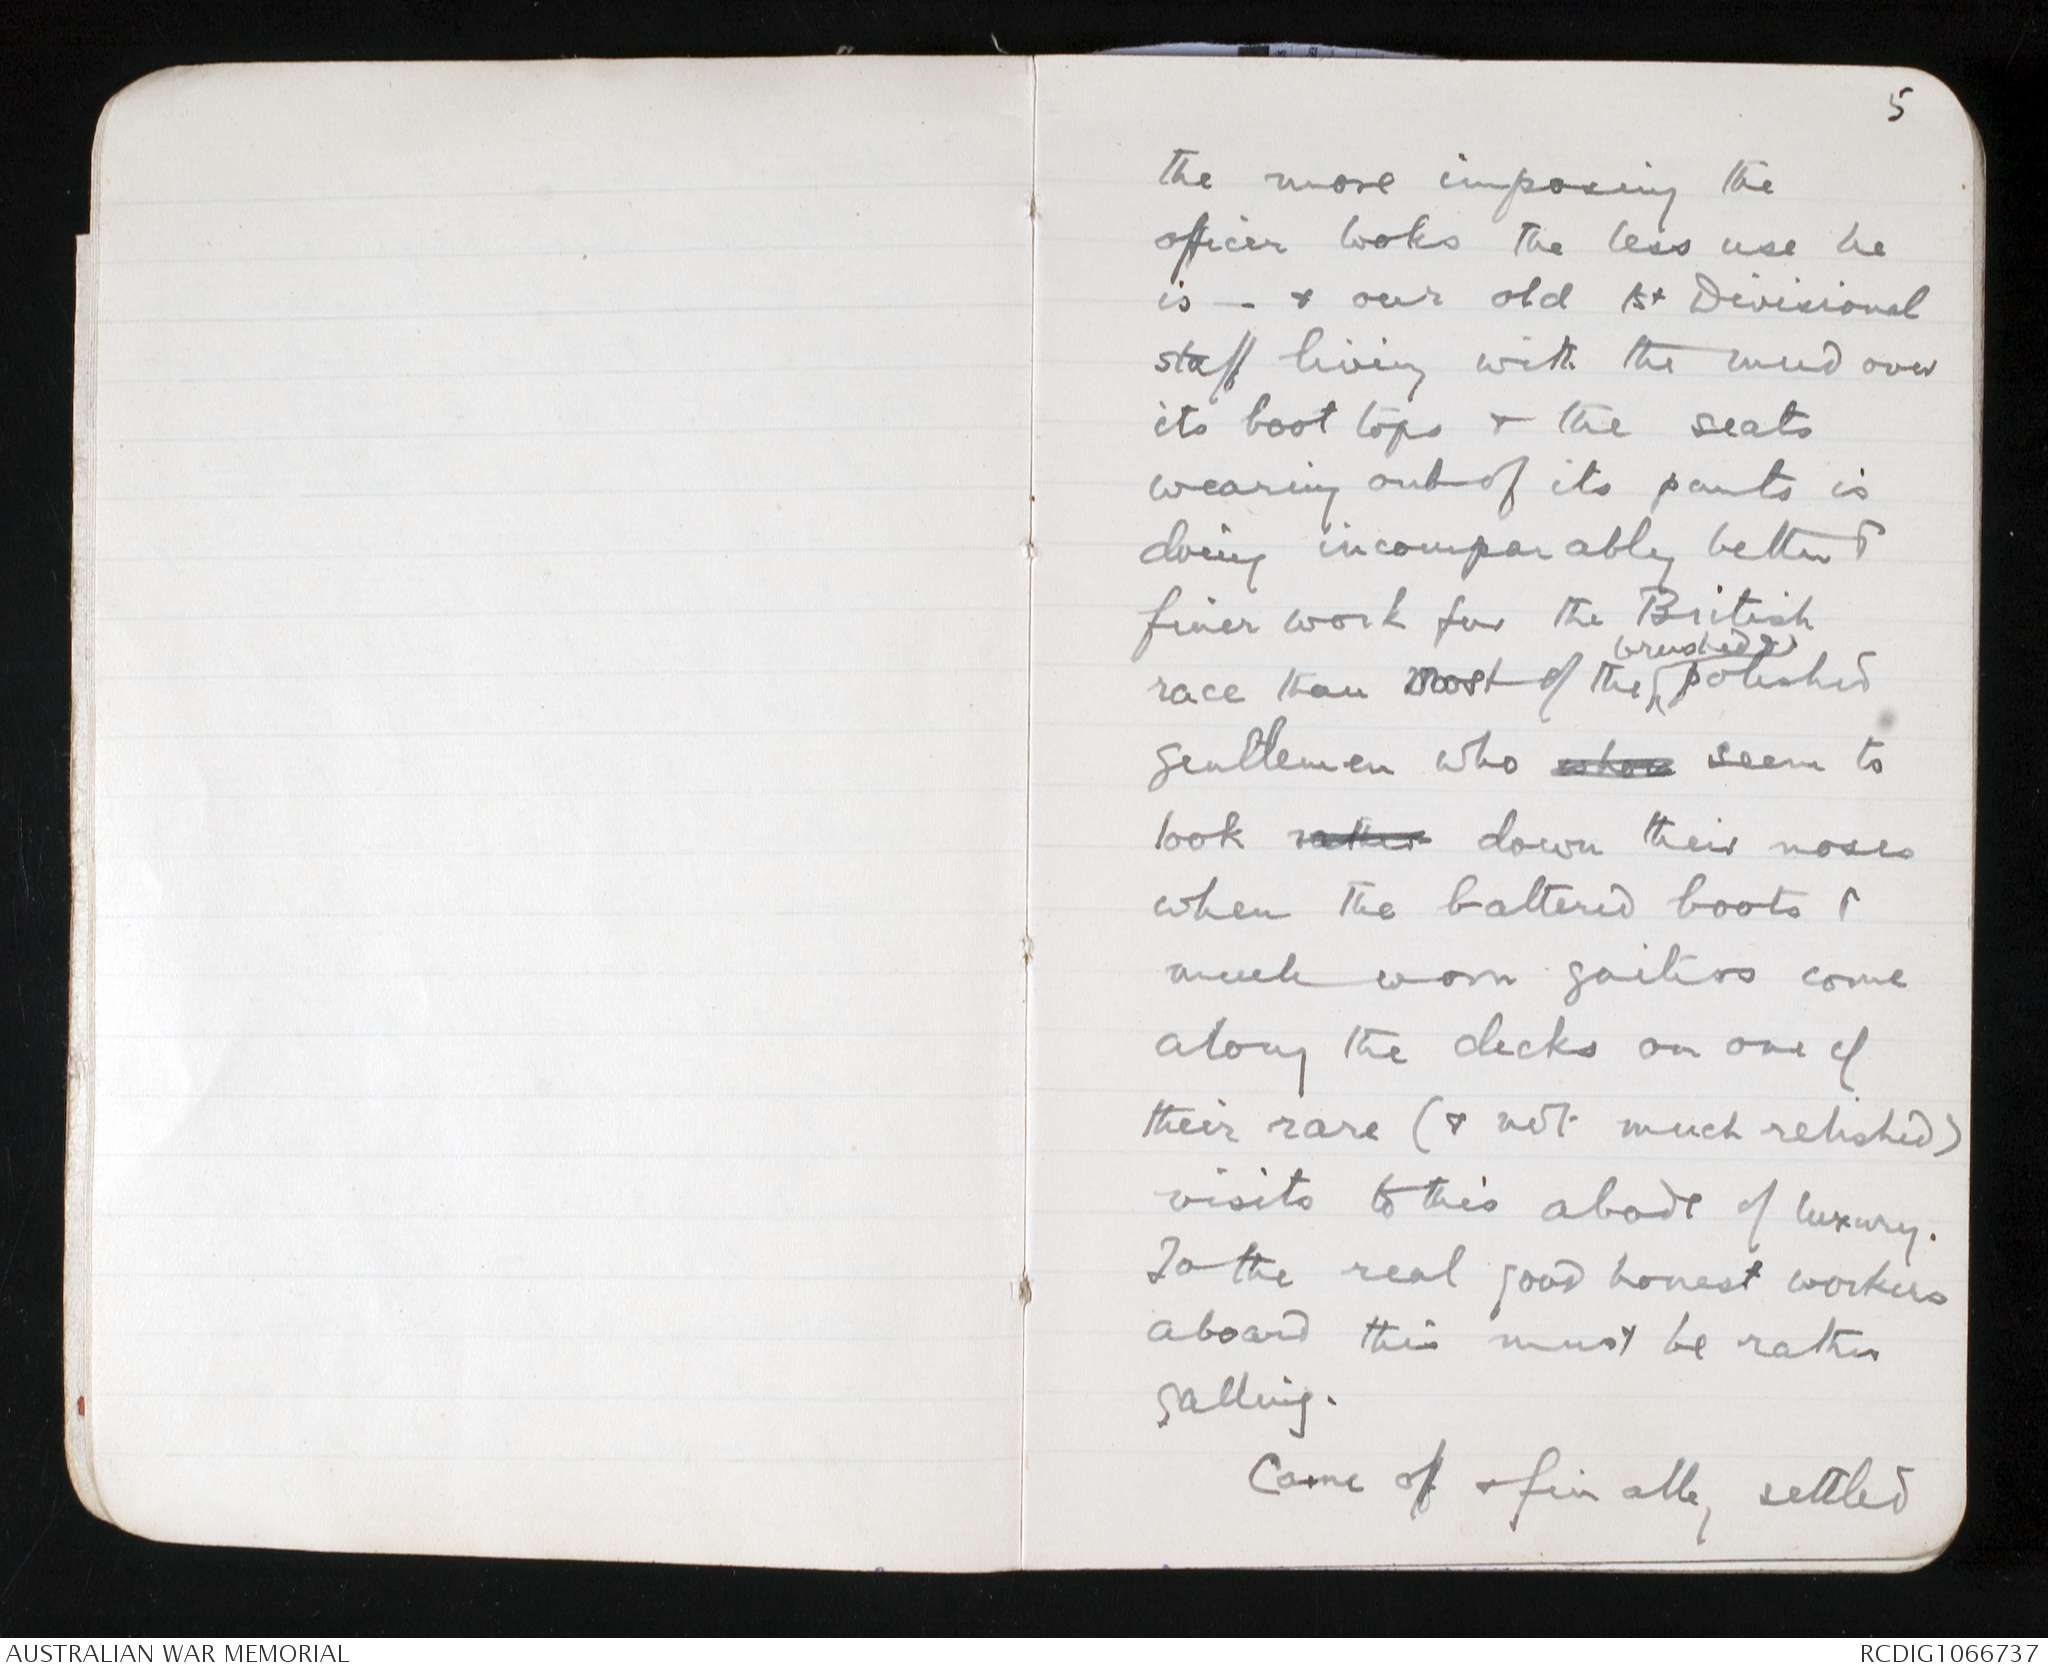 5
the more imposing the
officer looks the less use he
is - & our old 1st Divisional
staff living with the mud over
its boot tops & the seats
wearing out of its pants is
doing incomparably better &
finer work for the British
race than most of the brushed & polished
gentlemen who seem to
look rather down their noses
when the battered boots &
much worn gaiters come
along the decks on one of
their rare (& not much relished)
visits to this abode of luxury.
To the real good honest workers
aboard this must be rather
galling.
Came off & finally settled
AUSTRALIAN WAR MEMORIAL
RCDIG1066737